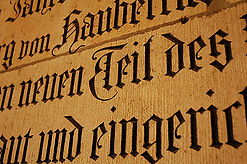 Jahr
rg von Haubern
n neuen Teil des
aut und eingeric